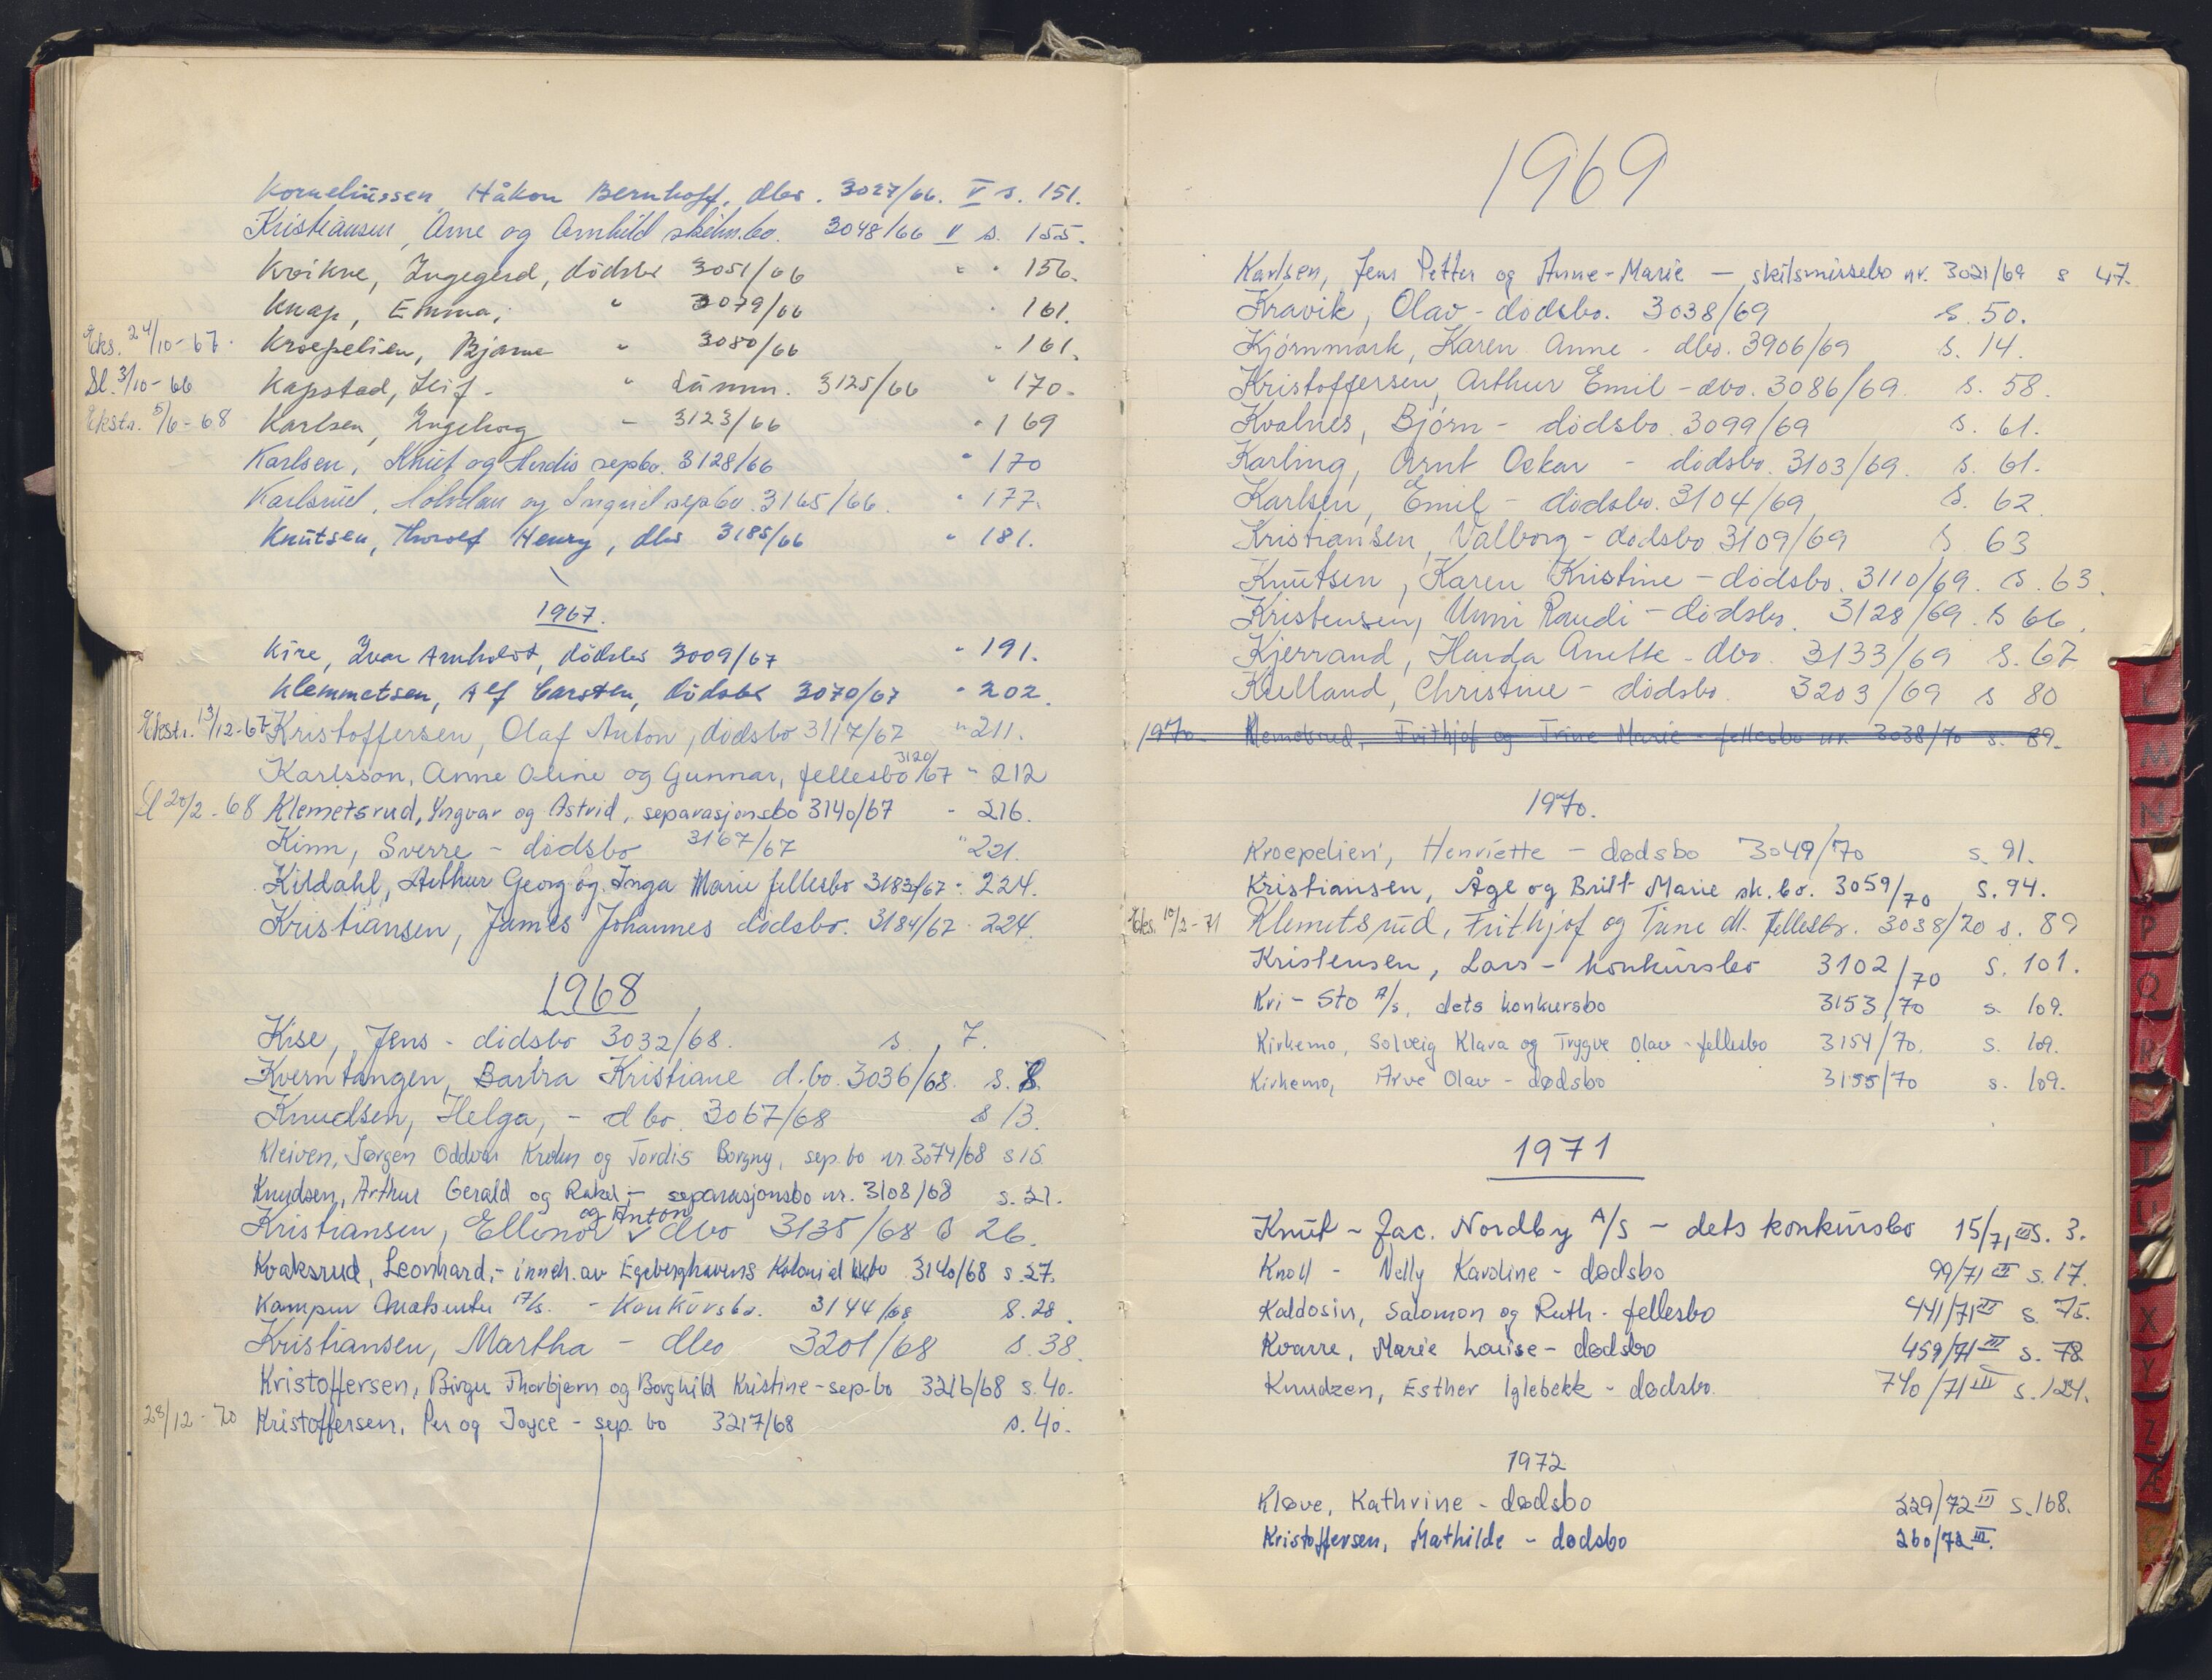 Korneliussen, Håkon Bernhoff, dbo. 3027/66. V s. 151.
Kristiansen, Arne og Arnhild skilm.bo. 3048/66 V s. 155.
Kvikne, Ingegerd, dödsbo 3051/66 " " 156.
Knap, Emma, " 3079/66 " 161.
Eks. 24/10-67. Kroepelien, Bjarne " 3080/66 " 161.
Sl. 3/10-66 Kapstad, Leif. " 3125/66 " 170.
Ekstr. 5/6-68 Karlsen, Ingeborg " 3123/66 " 169
Karlsen, Knut og Herdis sepbo. 3128/66 " 170
Karlsrud, og Ingrid sepbo. 3165/66. " 177.
Knutsen, Thorolf Henry, dbo 3185/66 " 181.
1967.
Kire, Ivar Arnholdt, dödsbo 3009/67 " 191.
Klemmetsen, Alf Carsten, dödsbo 3070/67 " 202.
Ekstr. 13/12-67 Kristoffersen, Olaf Anton, dödsbo 3117/67 " 211.
Karlsson, Anne Oline og Gunnar, fellesbo 3120/67 " 212
Sl 20/2-68 Klemetsrud, Yngvar og Astrid, separasjonsbo 3140/67 - 216.
Kinn, Sverre - dödsbo 3167/67 " 221.
Kildahl, Arthur Georg og Inga Marie fellesbo 3183/67 " 224.
Kristiansen, James Johannes dödsbo. 3184/67 " 224.
1968
Kise, Jens - dödsbo 3032/68. s. 7.
Kverntangen, Barbra Kristiane d.bo. 3036/68. s. 8.
Knudsen, Helga, - dbo. 3067/68 s 13.
Kleiven, Jørgen Oddvar Krohn og Tordis Borgny, sep. bo nr. 3074/68 s 15.
Knudsen, Arthur Gerald og Rakel, - separasjonsbo nr. 3108/68 s. 21.
Kristiansen, Ellinor og Anton dbo 3135/68 s 26.
Kvaksrud, Leonhard, - inneh. av Egeberghavens Kolonial kkbo 3140/68 s. 27.
Kampen A/s. - Konkursbo. 3144/68 s. 28.
Kristiansen, Martha - dbo 3201/68 s. 38.
Kristoffersen, Birger Thorbjørn og Borghild Kristine - sep.bo 3216/68 s. 40.
28/12-70 Kristoffersen, Per og Joyce - sep. bo 3217/68 s. 40.
1969
Karlsen, Jens Petter og Anne-Marie - skilsmissebo nr. 3021/69 s 47.
Kravik, Olav - dödsbo. 3038/69 s. 50.
Kjörnmark, Karen Anne - dbo. 3906/69 s. 14.
Kristoffersen, Arthur Emil - dbo. 3086/69. s. 58.
Kvalnes, Björn - dödsbo. 3099/69 s. 61.
Karling, Arnt Oskar - dödsbo. 3103/69. s. 61.
Karlsen, Emil - dödsbo. 3104/69 s. 62
Kristiansen, Valborg - dödsbo 3109/69 s. 63
Knutsen, Karen Kristine - dödsbo. 3110/69. s. 63.
Kristensen, Unni Randi - dödsbo. 3128/69. s 66.
Kjerrand, Harda Anette - dbo. 3133/69 s. 67
Kielland, Christine - dödsbo. 3203/69 s 80
1970. Klemetsrud, Frithjof og Trine Marie - fellesbo nr. 3038/70 s. 89.
1970.
Kroepelien, Henriette - dødsbo 3049/70 s. 91.
Kristiansen, Åge og Britt Marie sk.bo. 3059/70 s. 94.
Eks. 10/2-71 Klemetsrud, Frithjof og Trine M. fellesbo. 3038/70 s. 89
Kristensen, Lars - konkursbo 3102/70 s. 101.
Kvi-Sto A/s, dets konkursbo 3153/70 s. 109.
Kirkemo, Solveig Klara og Trygve Olav - fellesbo 3154/70. s. 109.
Kirkemo, Arve Olav - dødsbo 3155/70 s. 109.
1971
Knut - Jac. Nordby A/S - dets konkursbo 15/71 III s. 3.
Knoll - Nelly Karoline - dødsbo 99/71 III s. 17.
Kaldosin, Salomon og Ruth - fellesbo 441/71 III s. 75.
Kvarre, Marie Louise - dødsbo 459/71 III s. 78
Knudzen, Esther Iglebekk - dødsbo. 740/71 III s. 121.
1972
Kløve, Kathrine - dødsbo 229/72 III s. 168.
Kristoffersen, Mathilde - dødsbo 260/72 III.
L
M
N
P
Q
R
T
U
X
Y
Z
Å